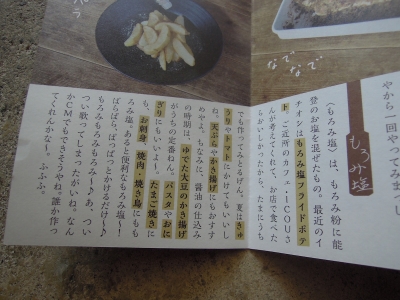 パラ
なでなで
やから一回やってみますし
もろみ塩
〈もろみ塩〉は、もろみ粉に能
登のお塩を混ぜたもの。最近のイ
チオシはもろみ塩フライドポテ
ト。ご近所のカフェ・ICOUさ
んが考えてくれて、お店で食べた
らおいしかったから、たまにうち
でも作ってみとるげん。夏はきゅ
うりやトマトにかけてもいいし
ね。天ぷらやかき揚げにもおすす
めやよ。ちなみに、醤油の仕込み
の時期は、ゆでた大豆のかき揚げ
がうちの定番ねん。パスタやおに
ぎりにもいいよー。たまご焼きに
も、お刺身、焼肉・焼き鳥にもも
ろみ塩。あると便利なもろみ塩〜！
ぱらぱら、ぱぱっとかけるだけ〜♪
もろみもろみもろみ〜♪あ、つい
つい歌ってしまったがいね。なん
かCMでもできそうやね。誰か作っ
てくれんかなー。ふふふ。